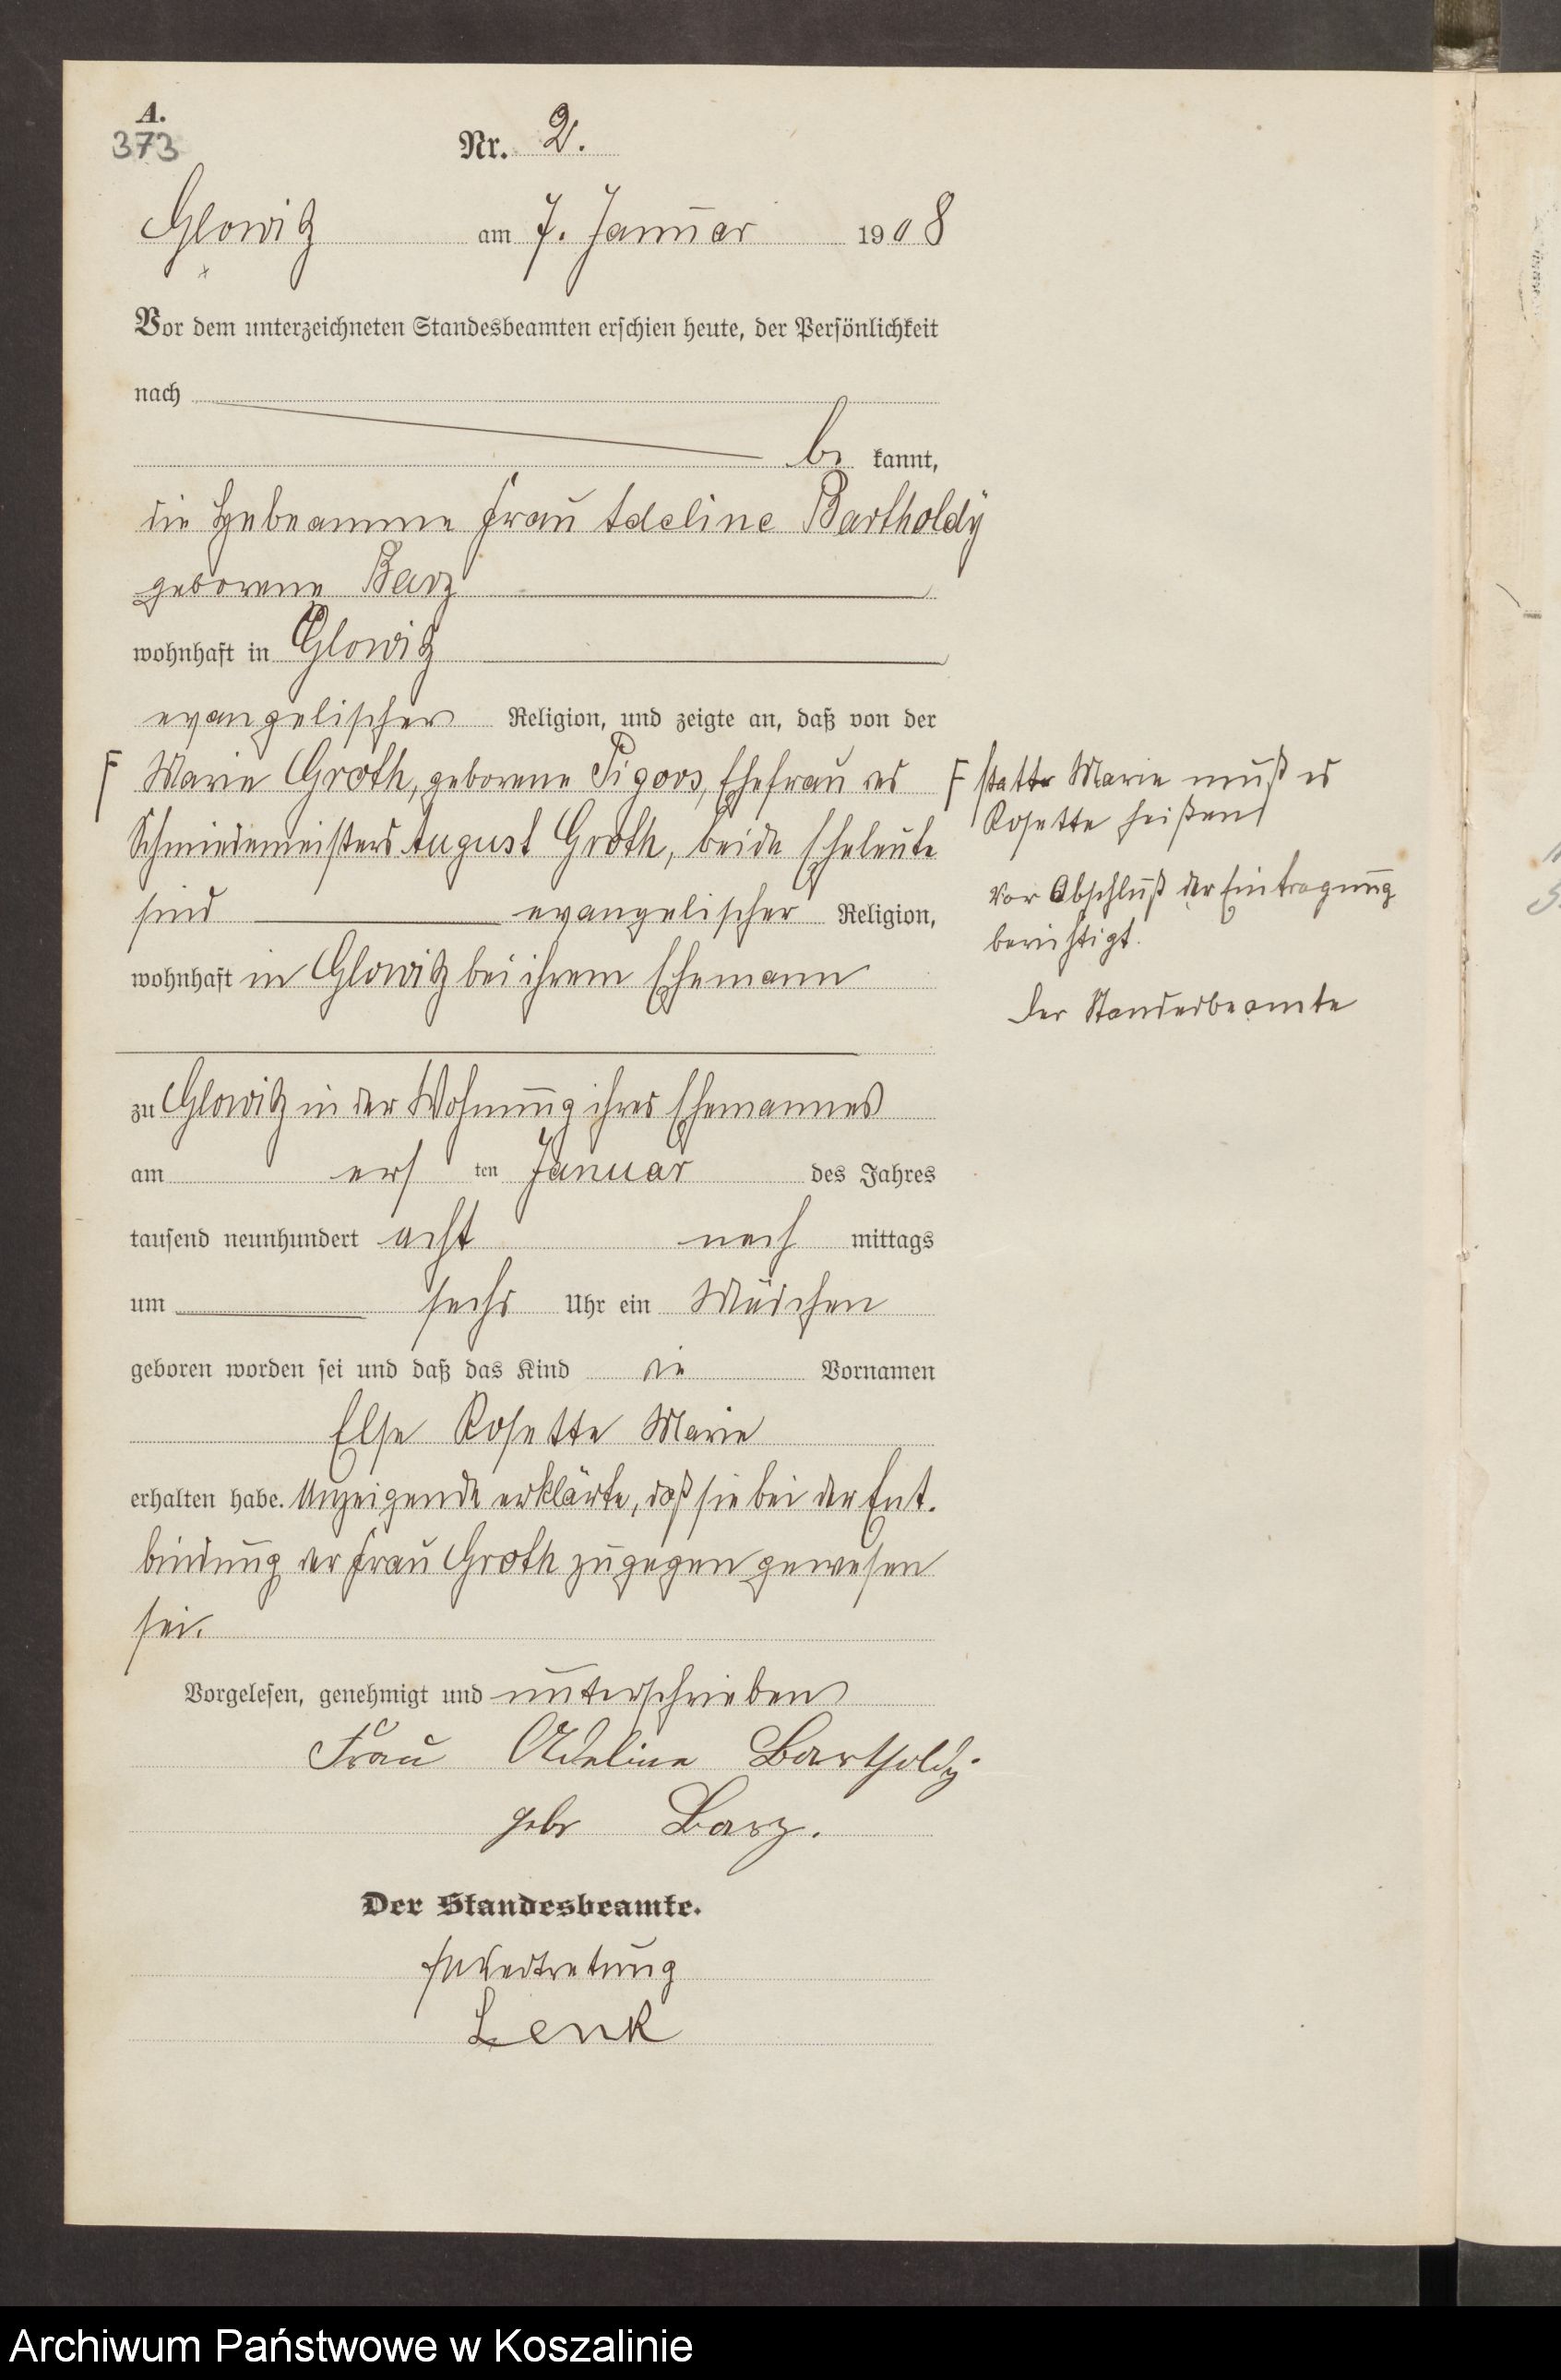 A.
373
Nr. 2.
Glowitz am 7. Januar 1908
Vor dem unterzeichneten Standesbeamten erschien heute, der Persönlichkeit
nach
be kannt,
die Hebeamme Frau Adeline Bartholdy
geborene Barz
wohnhaft in Glowitz
evangelischer Religion, und zeigte an, daß von der
F Marie Groth, geborene Pigors, Ehefrau des
Schmiedemeisters August Groth, beide Eheleute
sind evangelischer Religion,
wohnhaft in Glowitz bei ihrem Ehemann
zu Glowitz in der Wohnung ihres Ehemannes
am ers ten Januar des Jahres
tausend neunhundert acht nach mittags
um sechs Uhr ein Mädchen
geboren worden sei und daß das Kind die Vornamen
Else Rosette Marie
erhalten habe. Anzeigende erklärte, daß sie bei der Ent-
bindung der Frau Groth zugegen gewesen
sei.
Vorgelesen, genehmigt und unterschrieben
Frau Adeline Bartholdy
gebr Barz.
Der Standesbeamte.
In Vertretung
Lenk
F statt Marie muß es
Rosette heißen
Vor Abschluß der Eintragung
berichtigt.
Der Standesbeamte
Archiwum Państwowe w Koszalinie